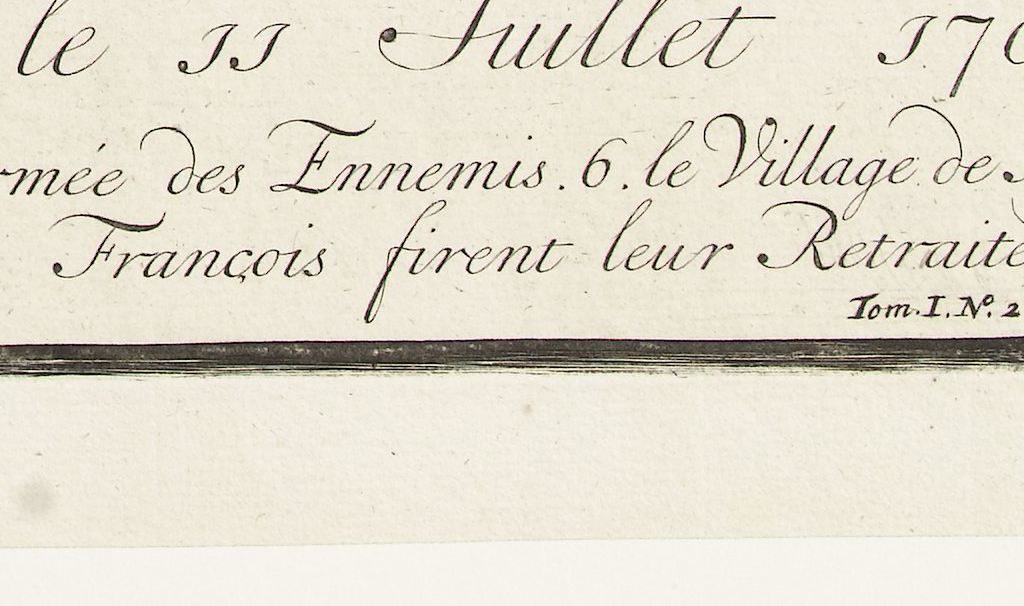 le 11 Juillet 170
rmée des Ennemis. 6. le Village de
François firent leur Retraite
Tom. I. Nº. 2